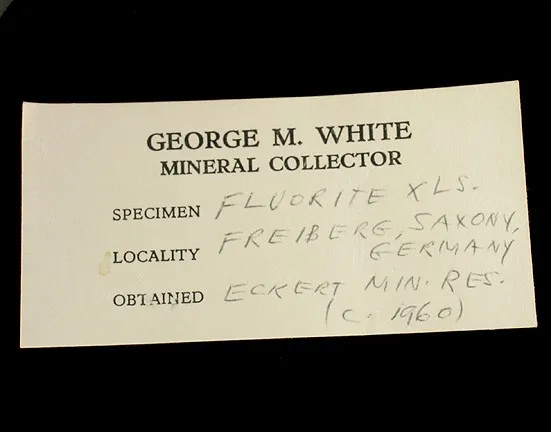 GEORGE M. WHITE
MINERAL COLLECTOR
SPECIMEN FLUORITE XLS.
LOCALITY FREIBERG, SAXONY,
GERMANY
OBTAINED ECKERT MIN. RES.
(C. 1960)